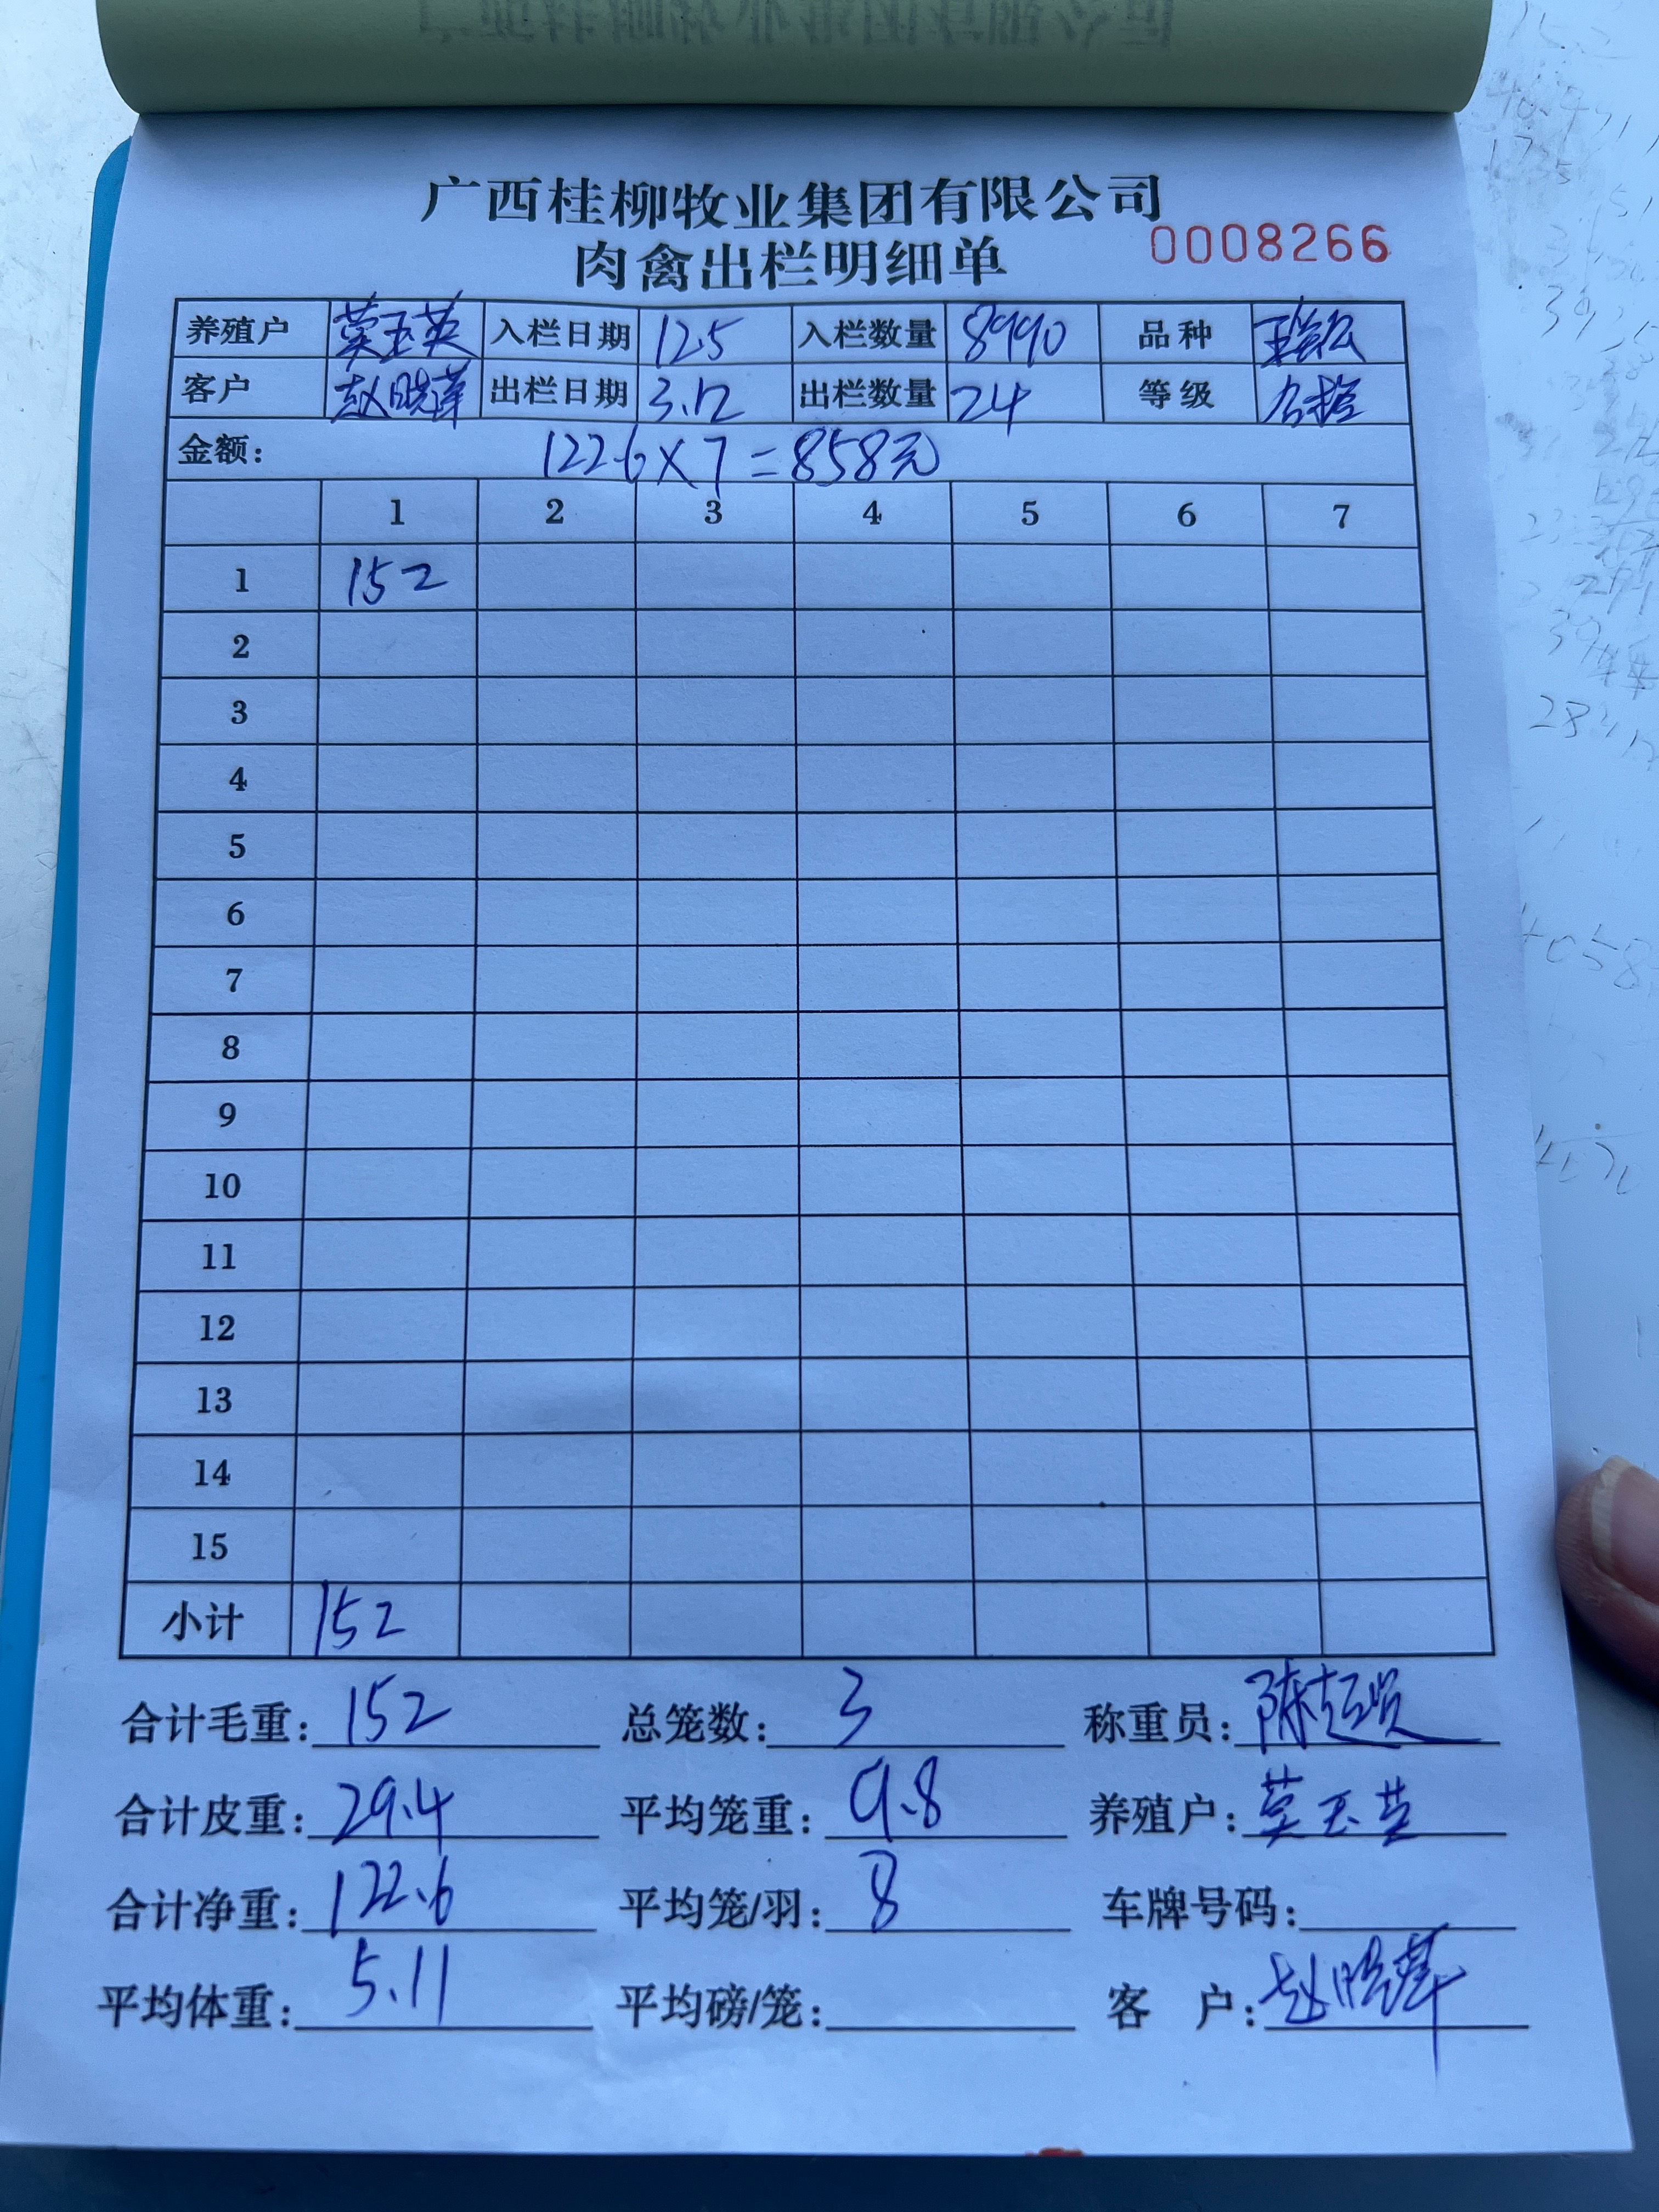 广西桂柳牧业集团有限公司
肉禽出栏明细单 0008266
养殖户 莫玉英 入栏日期 12.5 入栏数量 8990 品种
客户 赵晓萍 出栏日期 3.12 出栏数量 24 等级
金额: 122.6×7=858元
1 2 3 4 5 6 7
1 152
2
3
4
5
6
7
8
9
10
11
12
13
14
15
小计 152
合计毛重: 152 总笼数: 3 称重员: 陈超贤
合计皮重: 29.4 平均笼重: 9.8 养殖户: 莫玉英
合计净重: 122.6 平均笼/羽: 8 车牌号码:
平均体重: 5.11 平均磅/笼: 客 户: 赵晓萍